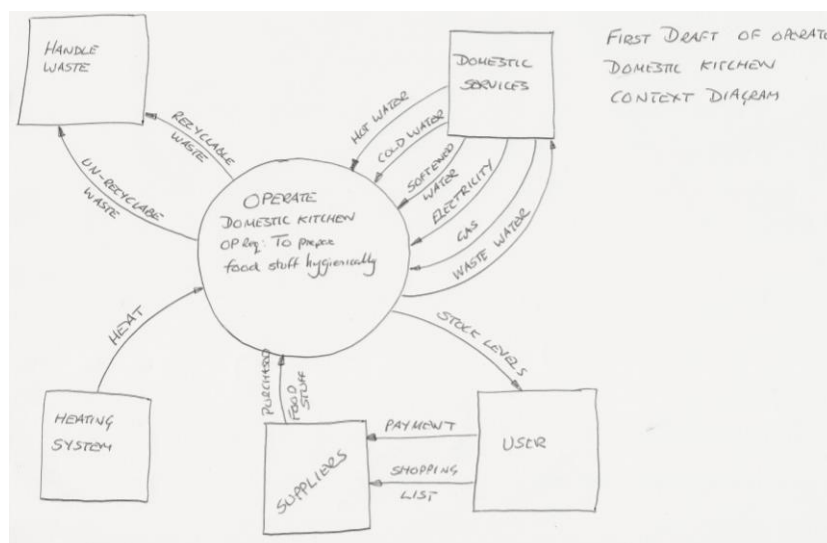 HANDLE
WASTE
DOMESTIC
SERVICES
FIRST DRAFT OF OPERATE
DOMESTIC KITCHEN
CONTEXT DIAGRAM
RECYCLABLE
WASTE
UN-RECYCLABE
WASTE
HOT WATER
COLD WATER
SOFTENED
WATER
ELECTRICITY
GAS
WASTE WATER
OPERATE
DOMESTIC KITCHEN
OP Req: To prepare
food stuff hygienically
HEAT
STOCK LEVELS
PURCHASED
FOOD
STUFF
HEATING
SYSTEM
SUPPLIERS
PAYMENT
SHOPPING
LIST
USER